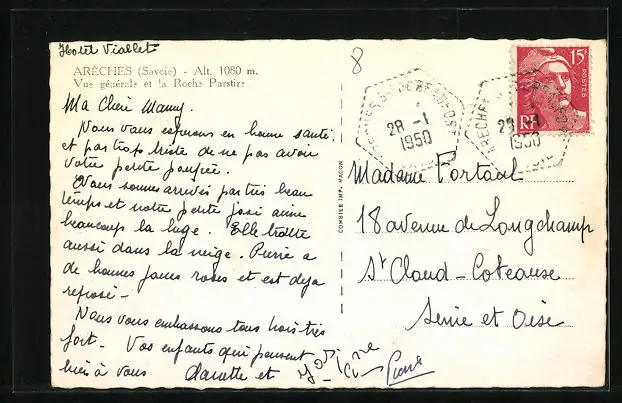 Hotel Viallet
ARÊCHES (Savoie) - Alt. 1080 m.
Vue générale et la Roche Parstire
Ma Chère Mamy.
Nous vous espérons en bonne santé.
et pas trop triste de ne pas avoir
votre petite poupée.
Nous sommes arrivés par très beau
temps et notre petite josi aime
beaucoup la luge. Elle trotte
aussi dans la neige. Pierre a
de bonnes joues roses et est deja
reposé -
Nous vous embrassons tous trois très
fort. - Vos enfants qui pensent
bien à vous Danette et
Pierre
8
COMBIER IMP. MACON
15F
POSTES
RF
28 -1
1950
28 -1
1950
Madame Fortant
18 avenue de Longchamp
St Cloud - Coteause
Seine et Oise